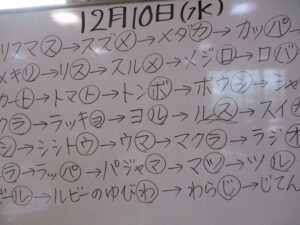 12月10日(水)
リスマス→スズメ→メダカ→カッパ→
メキリ→リス→スルメ→メジロ→ロバ
カート→トマト→トンボ→ボウシ→シャ
クラ→ラッキョ→ヨル→ルス→スイ
シ→シシトウ→ウマ→マクラ→ラジオ
ラ→ラッパ→パジャマ→マツ→ツル
ビール→ルビーのゆびわ→わらじ→じてん